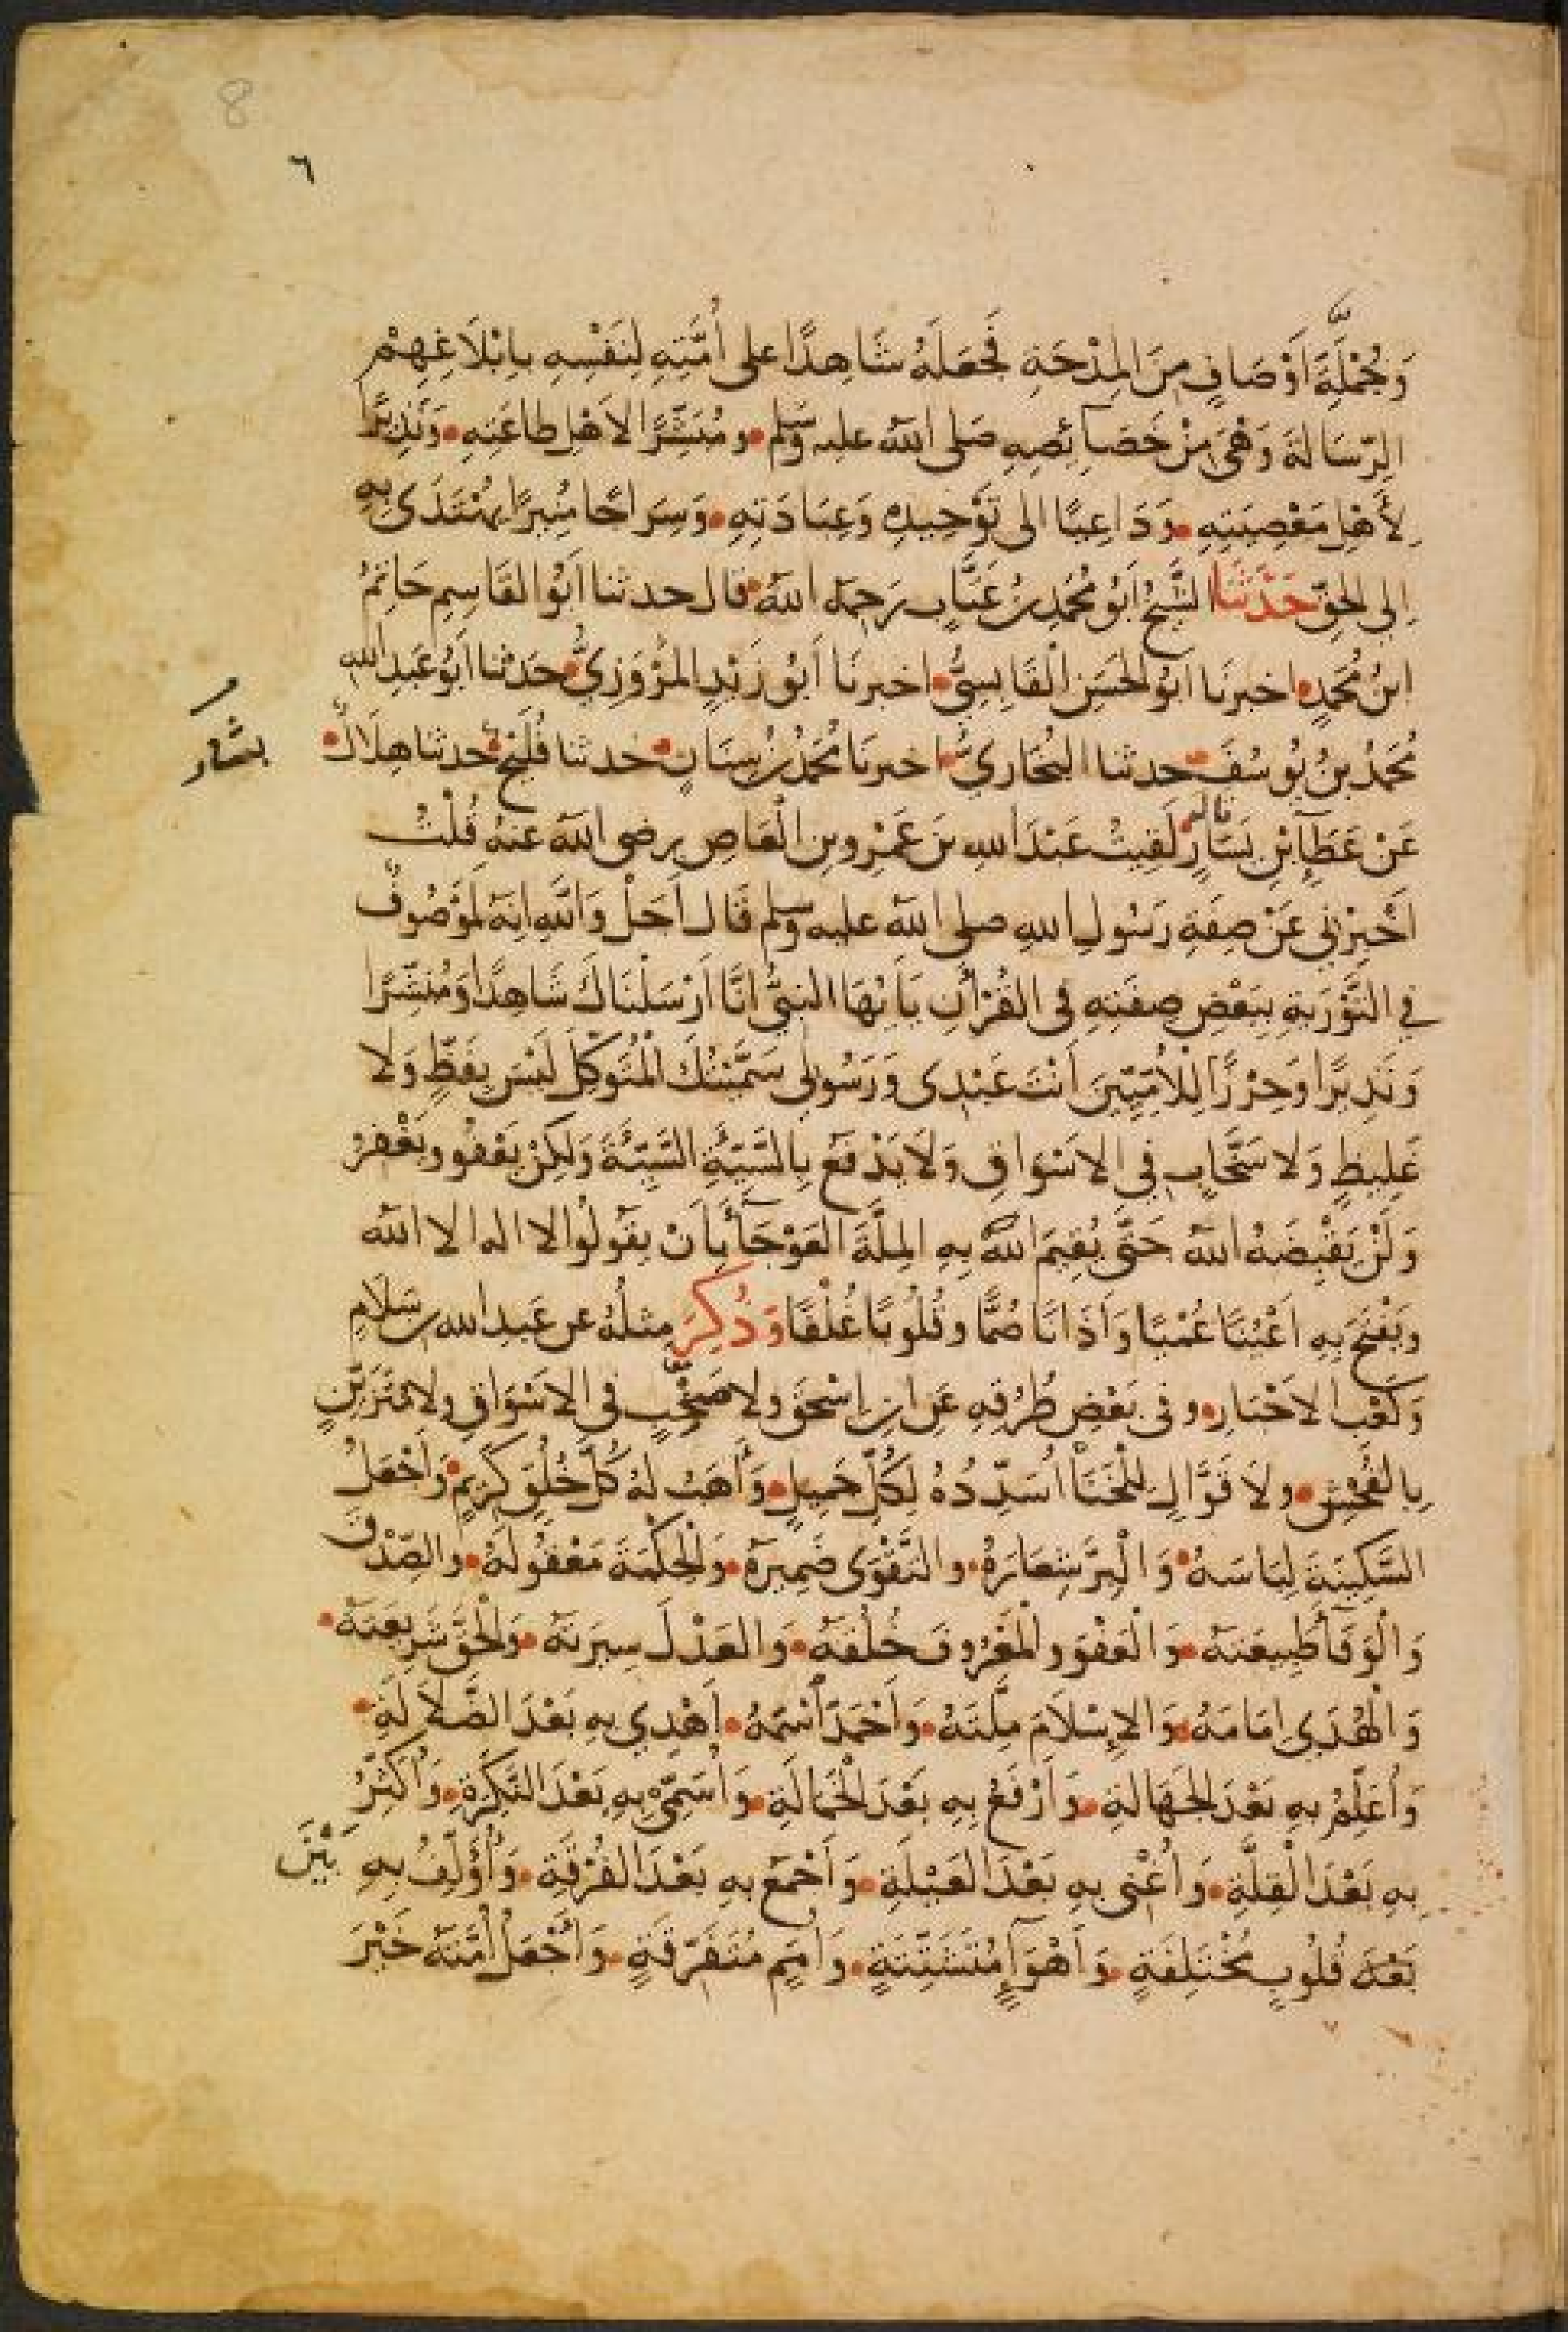 8
٦
وَجُمْلَةَ اَوْصَافٍ مِنَ المِدْحَةِ فَجَعَلَهُ شَاهِدًا على أُمَّتِهِ لِنَفْسِهِ بِابْلَاغِهِمْ
الرِّسَالةَ وَهْىَ مِنْ خَصَائِصِهِ صَلى الله عليه وَسَلم • ومُبَشِّرًا لاَهْلِ طاعَتِهِ • وَنَذِيرًا
لِأَهْلِ مَعْصِيَتِهِ • وَدَاعِيًا الى تَوْحِيدِهِ وَعِبَادَتِهِ • وَسِرَاجًا مُنِيرًا يُهْتَدَى بِهِ
اِلى الحَقِّ حَدَّثَنَا الشَّيْخُ اَبُو مُحَمّدِ بنُ عَتَّابٍ رَحِمَه اللهُ • قال حدثنا اَبُو القَاسِمِ حَاتِمُ
ابنُ مُحَمّدٍ • اخبرنَا اَبُو الحَسَنِ الْقَابِسِىُّ • اخبرنَا اَبُو زَيْدٍ المَرْوَزِيُّ • حَدثنا اَبُو عَبدِ الله
مُحَمّدُ بنُ يُوسُفَ • حدثنا البُخَارِيُّ • اخبرنَا مُحَمّدُ بنُ سِنَانٍ • حدثنا فُلَيْحٌ • حدثنا هِلَالٌ •
بشار
عَنْ عَطَآءِ بْنِ يَسَارٍ • قال لَقِيتُ عَبْدَ اللهِ بنَ عَمْرِو بنِ الْعَاصِ رضى الله عنهُ قُلْتُ
اَخْبِرْنِى عَنْ صِفَةِ رَسُولِ اللهِ صلى الله عليه وسلم قَال اَجَلْ وَاللهِ اِنَّهُ لَمَوْصُوفٌ
فِي التَّوْرَيةِ بِبَعْضِ صِفَتِهِ فِى القُرْأنِ يَاَيُّهَا النبىُّ اِنَّا اَرْسَلْنَاكَ شَاهِدًا وَمُبَشِّرًا
وَنَذِيرًا وَحِرْزًا لِلْاُمِّيِّينَ اَنْتَ عَبْدِى وَرَسُولِى سَمَّيْتُكَ الْمُتَوَكِّلَ لَيْسَ بِفَظٍّ وَلا
غَلِيظٍ وَلا سَخَّابٍ فِي الاَسْوَاقِ وَلَا يَدْفَعُ بِالسَّيِّئَةِ السَّيِّئَةَ وَلَكِنْ يَعْفُو ويَغْفِرُ
وَلَنْ يَقْبِضَهُ اللهُ حَتَّى يُقِيمَ اللهُ بِهِ المِلَّةَ العَوْجَآءَ بِاَنْ يقُولُوا لا اله الا الله
ويَفْتَحَ بِهِ اَعْيُنًا عُمْيًا وَاَذَانًا صُمًّا وقُلُوبًا غُلْفًا وَذُكِرَ مِثلُهُ عن عَبدِ الله بنِ سَلَامٍ
وَكَعْبِ الاَحْبَارِ • وفى بَعْضِ طُرُقِهِ عَنِ ابنِ اِسْحقَ ولا صَخِبٍ فى الاَسْوَاقِ ولا مُتَزَيِّنٍ
بِالفُحْشِ • ولَا قَوَّالٍ لِلْخَنَا اُسَدِّدُهُ لِكُلِّ جَمِيلٍ • وَاَهَبُ لَهُ كُلَّ خُلُقٍ كَرِيمٍ • وَاَجْعَلُ
السَّكِينَةَ لِبَاسَهُ • وَالْبِرَّ شِعَارَهُ • والتَّقْوَى ضَمِيرَهُ • وَالْحِكْمَةَ مَعْقُولَهُ • والصِّدْقَ
وَالْوَفَآءَ طَبِيعَتَهُ • وَالْعَفْوَ والْمَعْرُوفَ خُلُقَهُ • وَالعَدْلَ سِيرَتَهُ • وَالْحَقَّ شَرِيعَتَهُ •
وَالْهُدَى اِمَامَهُ • وَالاِسْلَامَ مِلَّتَهُ • وَاَحْمَدَ اسْمَهُ • اَهْدِي بِهِ بَعْدَ الضَّلَالَةِ •
وَاُعَلِّمُ بِهِ بَعْدَ الجَهَالةِ • وَاَرْفَعُ بِهِ بَعْدَ الْخَمَالَةِ • وَاُسَمِّى بِهِ بَعْدَ النَّكِرَةِ • وَاُكَثِّرُ
بِهِ بَعْدَ الْقِلَّةِ • وَاُغْنِى بِهِ بَعْدَ العَيْلَةِ • وَاَجْمَعُ بِهِ بَعْدَ الفُرْقَةِ • وَاُؤَلِّفُ بِهِ بَيْنَ
بَعْدَ قُلُوبٍ مُخْتَلِفَةٍ • وَاَهْوَآءٍ مُتَشَتِّتَةٍ • وَاُمَمٍ مُتَفَرِّقَةٍ • وَاَجْعَلُ اُمَّتَهُ خَيْرَ